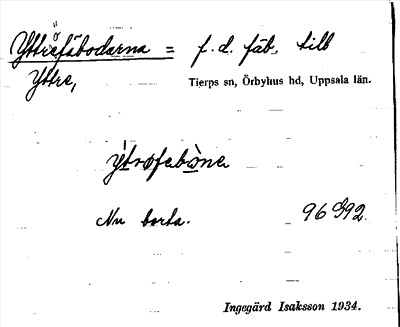 Yttrefäbodarna = f. d. fäb. till
Yttre,
Tierps sn, Örbyhus hd, Uppsala län.
ỳtrofebòna
Nu borta.
96 G92.
Ingegärd Isaksson 1934.